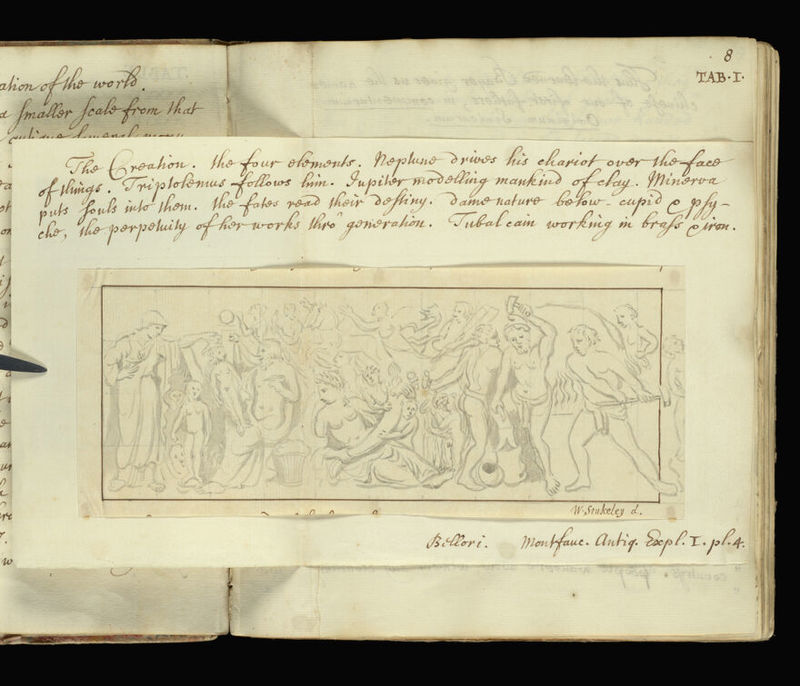 8
TAB. I.
ation of the world.
a smaller scale from that
The Creation. the four elements. Neptune drives his chariot over the face
of things. Triptolemus follows him. Jupiter modelling mankind of clay. Minerva
puts souls into them. the fates read their destiny. dame nature below - cupid & psy-
che, the perpetuity of her works thro' generation. Tubal cain working in brass & iron.
W. Stukeley d.
Bellori. Montfauc. Antiq. Expl. I. pl. 4.